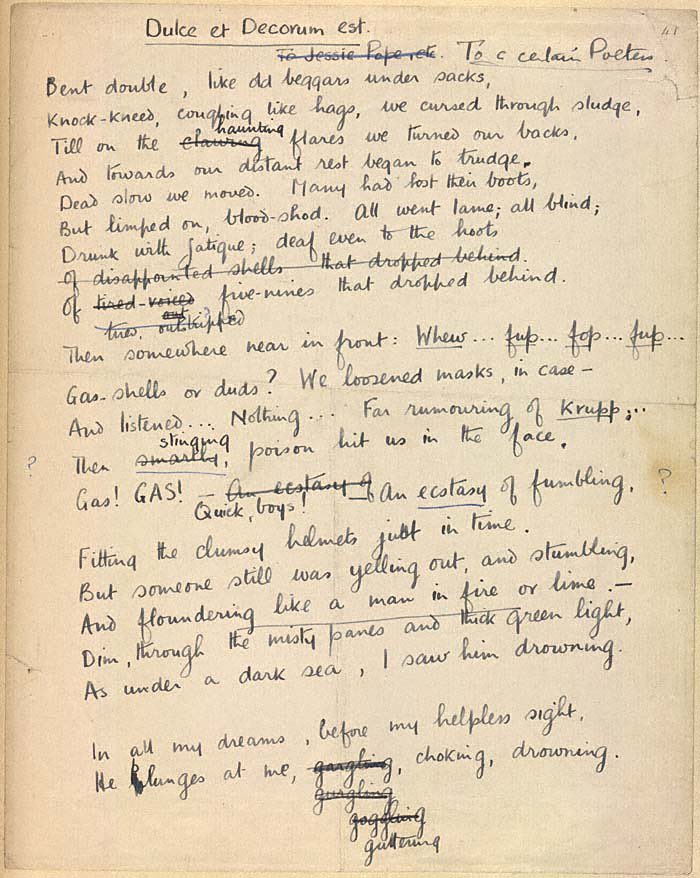 Dulce et Decorum est.
41
To Jessie Pope, etc. To a certain Poetess.
Bent double, like old beggars under sacks,
Knock-kneed, coughing like hags, we cursed through sludge,
haunting
Till on the clawing flares we turned our backs,
And towards our distant rest began to trudge.
Dead slow we moved. Many had lost their boots,
But limped on, blood-shod. All went lame; all blind;
Drunk with fatigue; deaf even to the hoots
Of disappointed shells that dropped behind.
Of tired-voiced five-nines that dropped behind.
out
tired, outstripped
Then somewhere near in front: Whew... fup... fop... fup...
Gas-shells or duds? We loosened masks, in case –
And listened... Nothing... Far rumouring of Krupp;..
stinging
? Then smartly, poison hit us in the face.
Gas! GAS! – An ecstasy of – An ecstasy of fumbling, ?
Quick, boys!
Fitting the clumsy helmets just in time.
But someone still was yelling out, and stumbling,
And floundering like a man in fire or lime. –
Dim, through the misty panes and thick green light,
As under a dark sea, I saw him drowning.
In all my dreams, before my helpless sight,
He plunges at me, gargling, choking, drowning.
gurgling
goggling
guttering